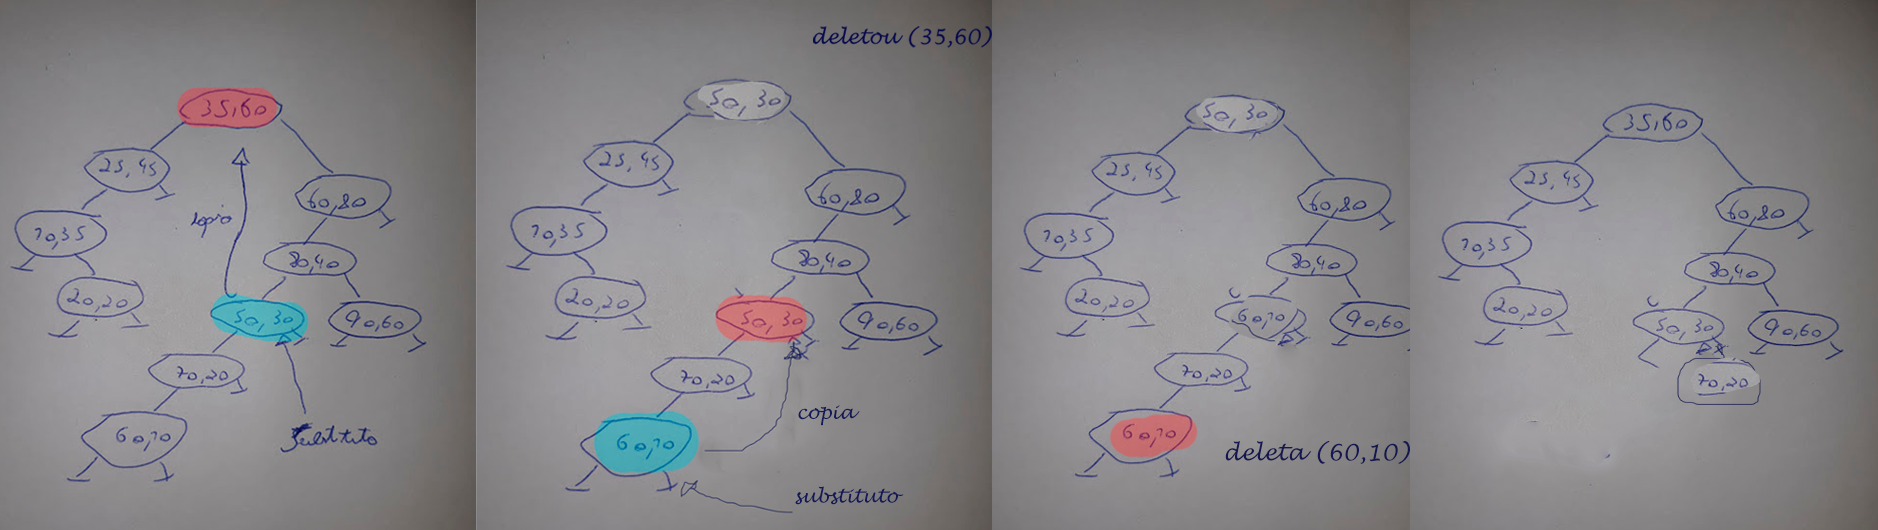 35,60
25,45
60,80
copia
70,35
80,40
20,20
50,30
90,60
70,20
60,70
substituto
deletou (35,60)
50,30
25,45
60,80
70,35
80,40
20,20
50,30
90,60
70,20
copia
60,70
substituto
50,30
25,45
60,80
70,35
80,40
20,20
60,70
90,60
70,20
60,70
deleta (60,10)
35,60
25,45
60,80
70,35
80,40
20,20
50,30
90,60
70,20